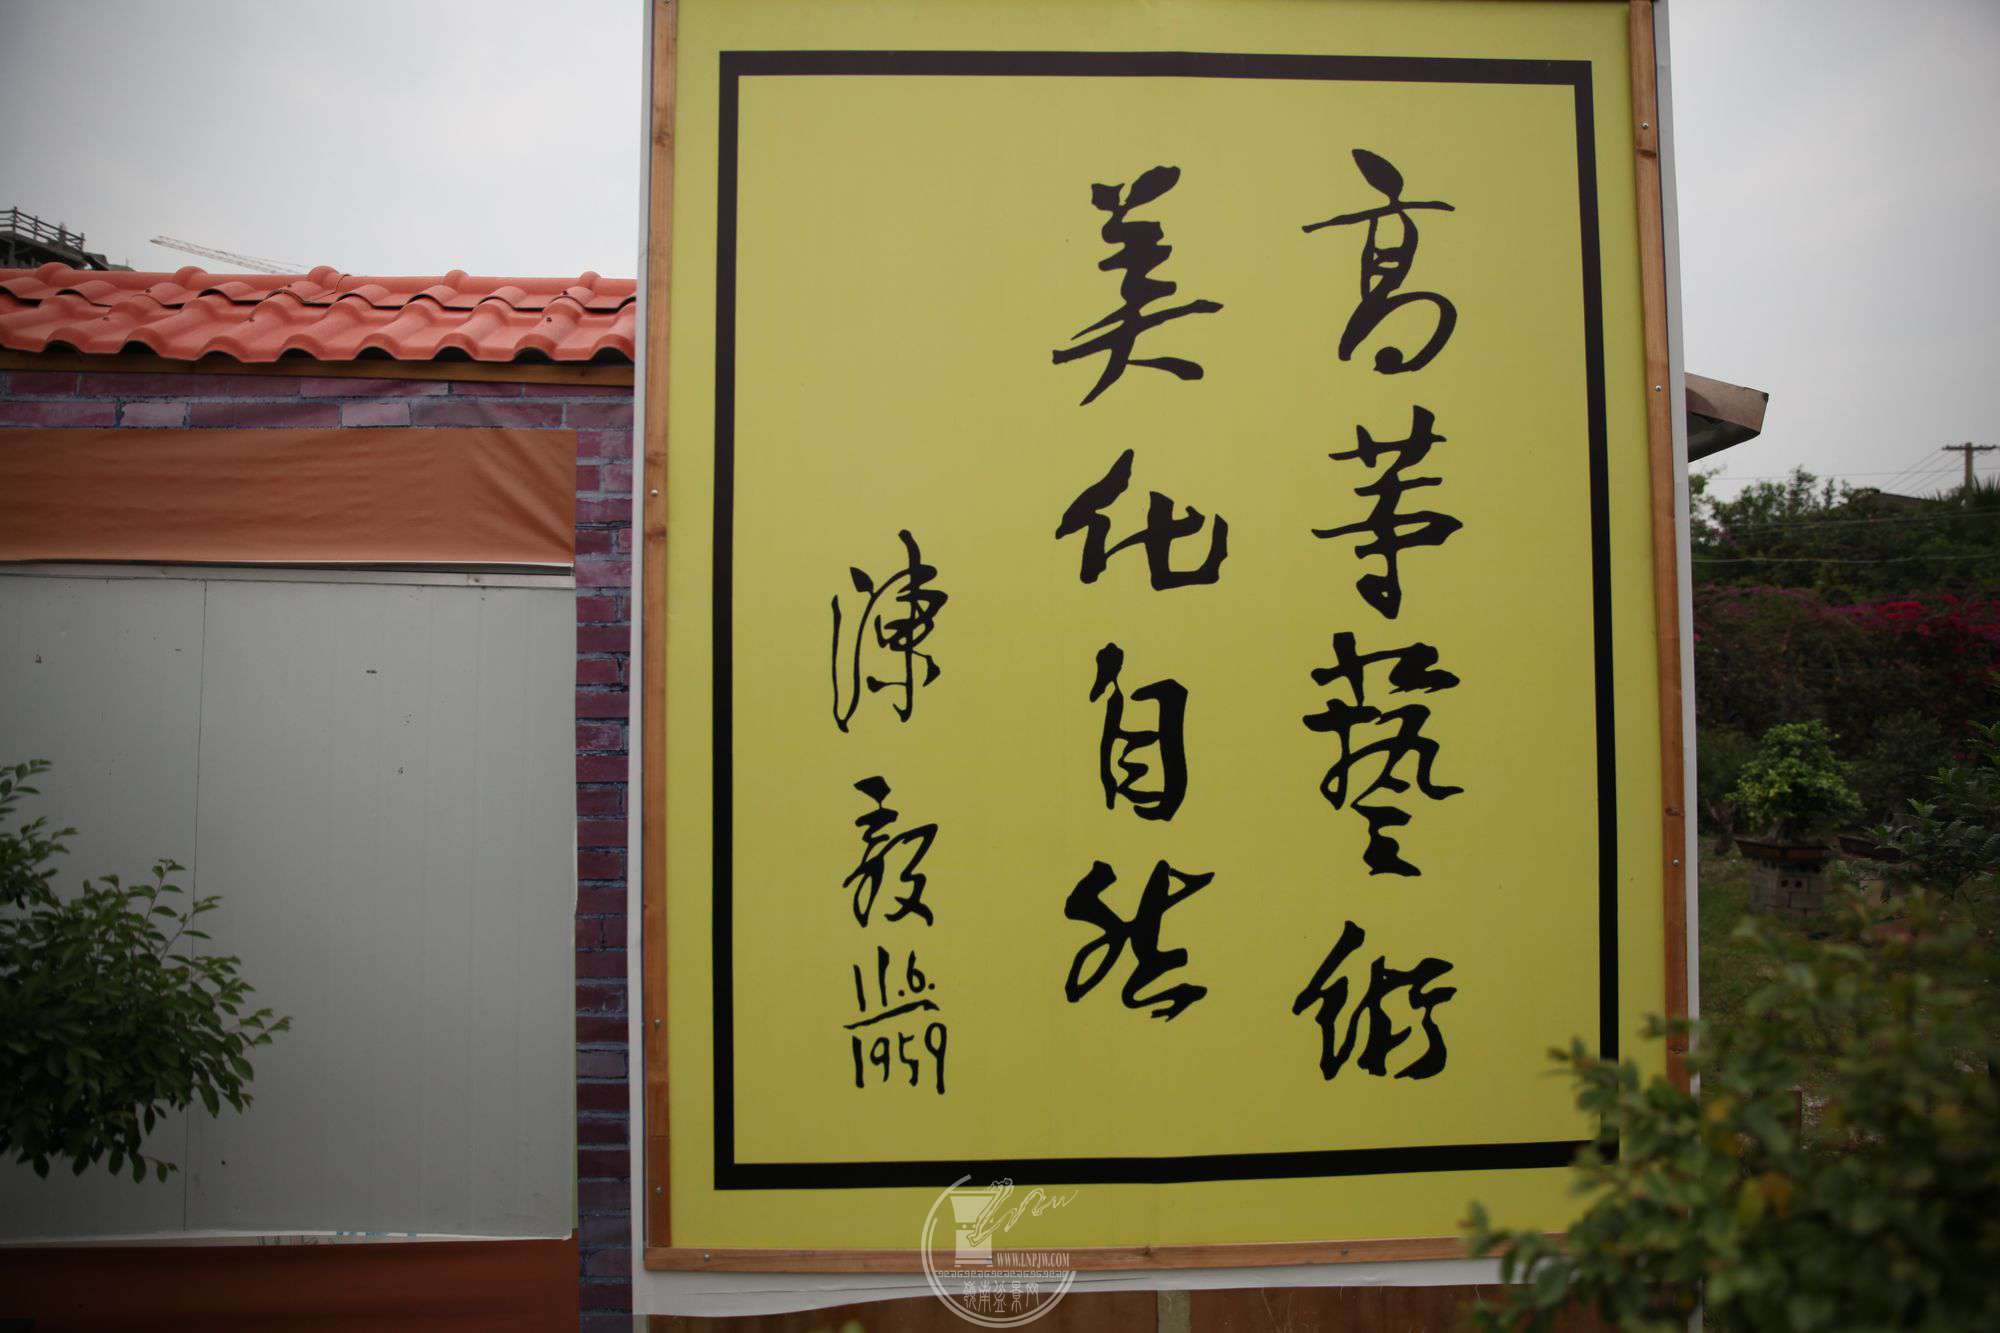 高等藝術
美化自然
陳毅
11.6.
1959
WWW.LNPJW.COM
嶺南盆景网